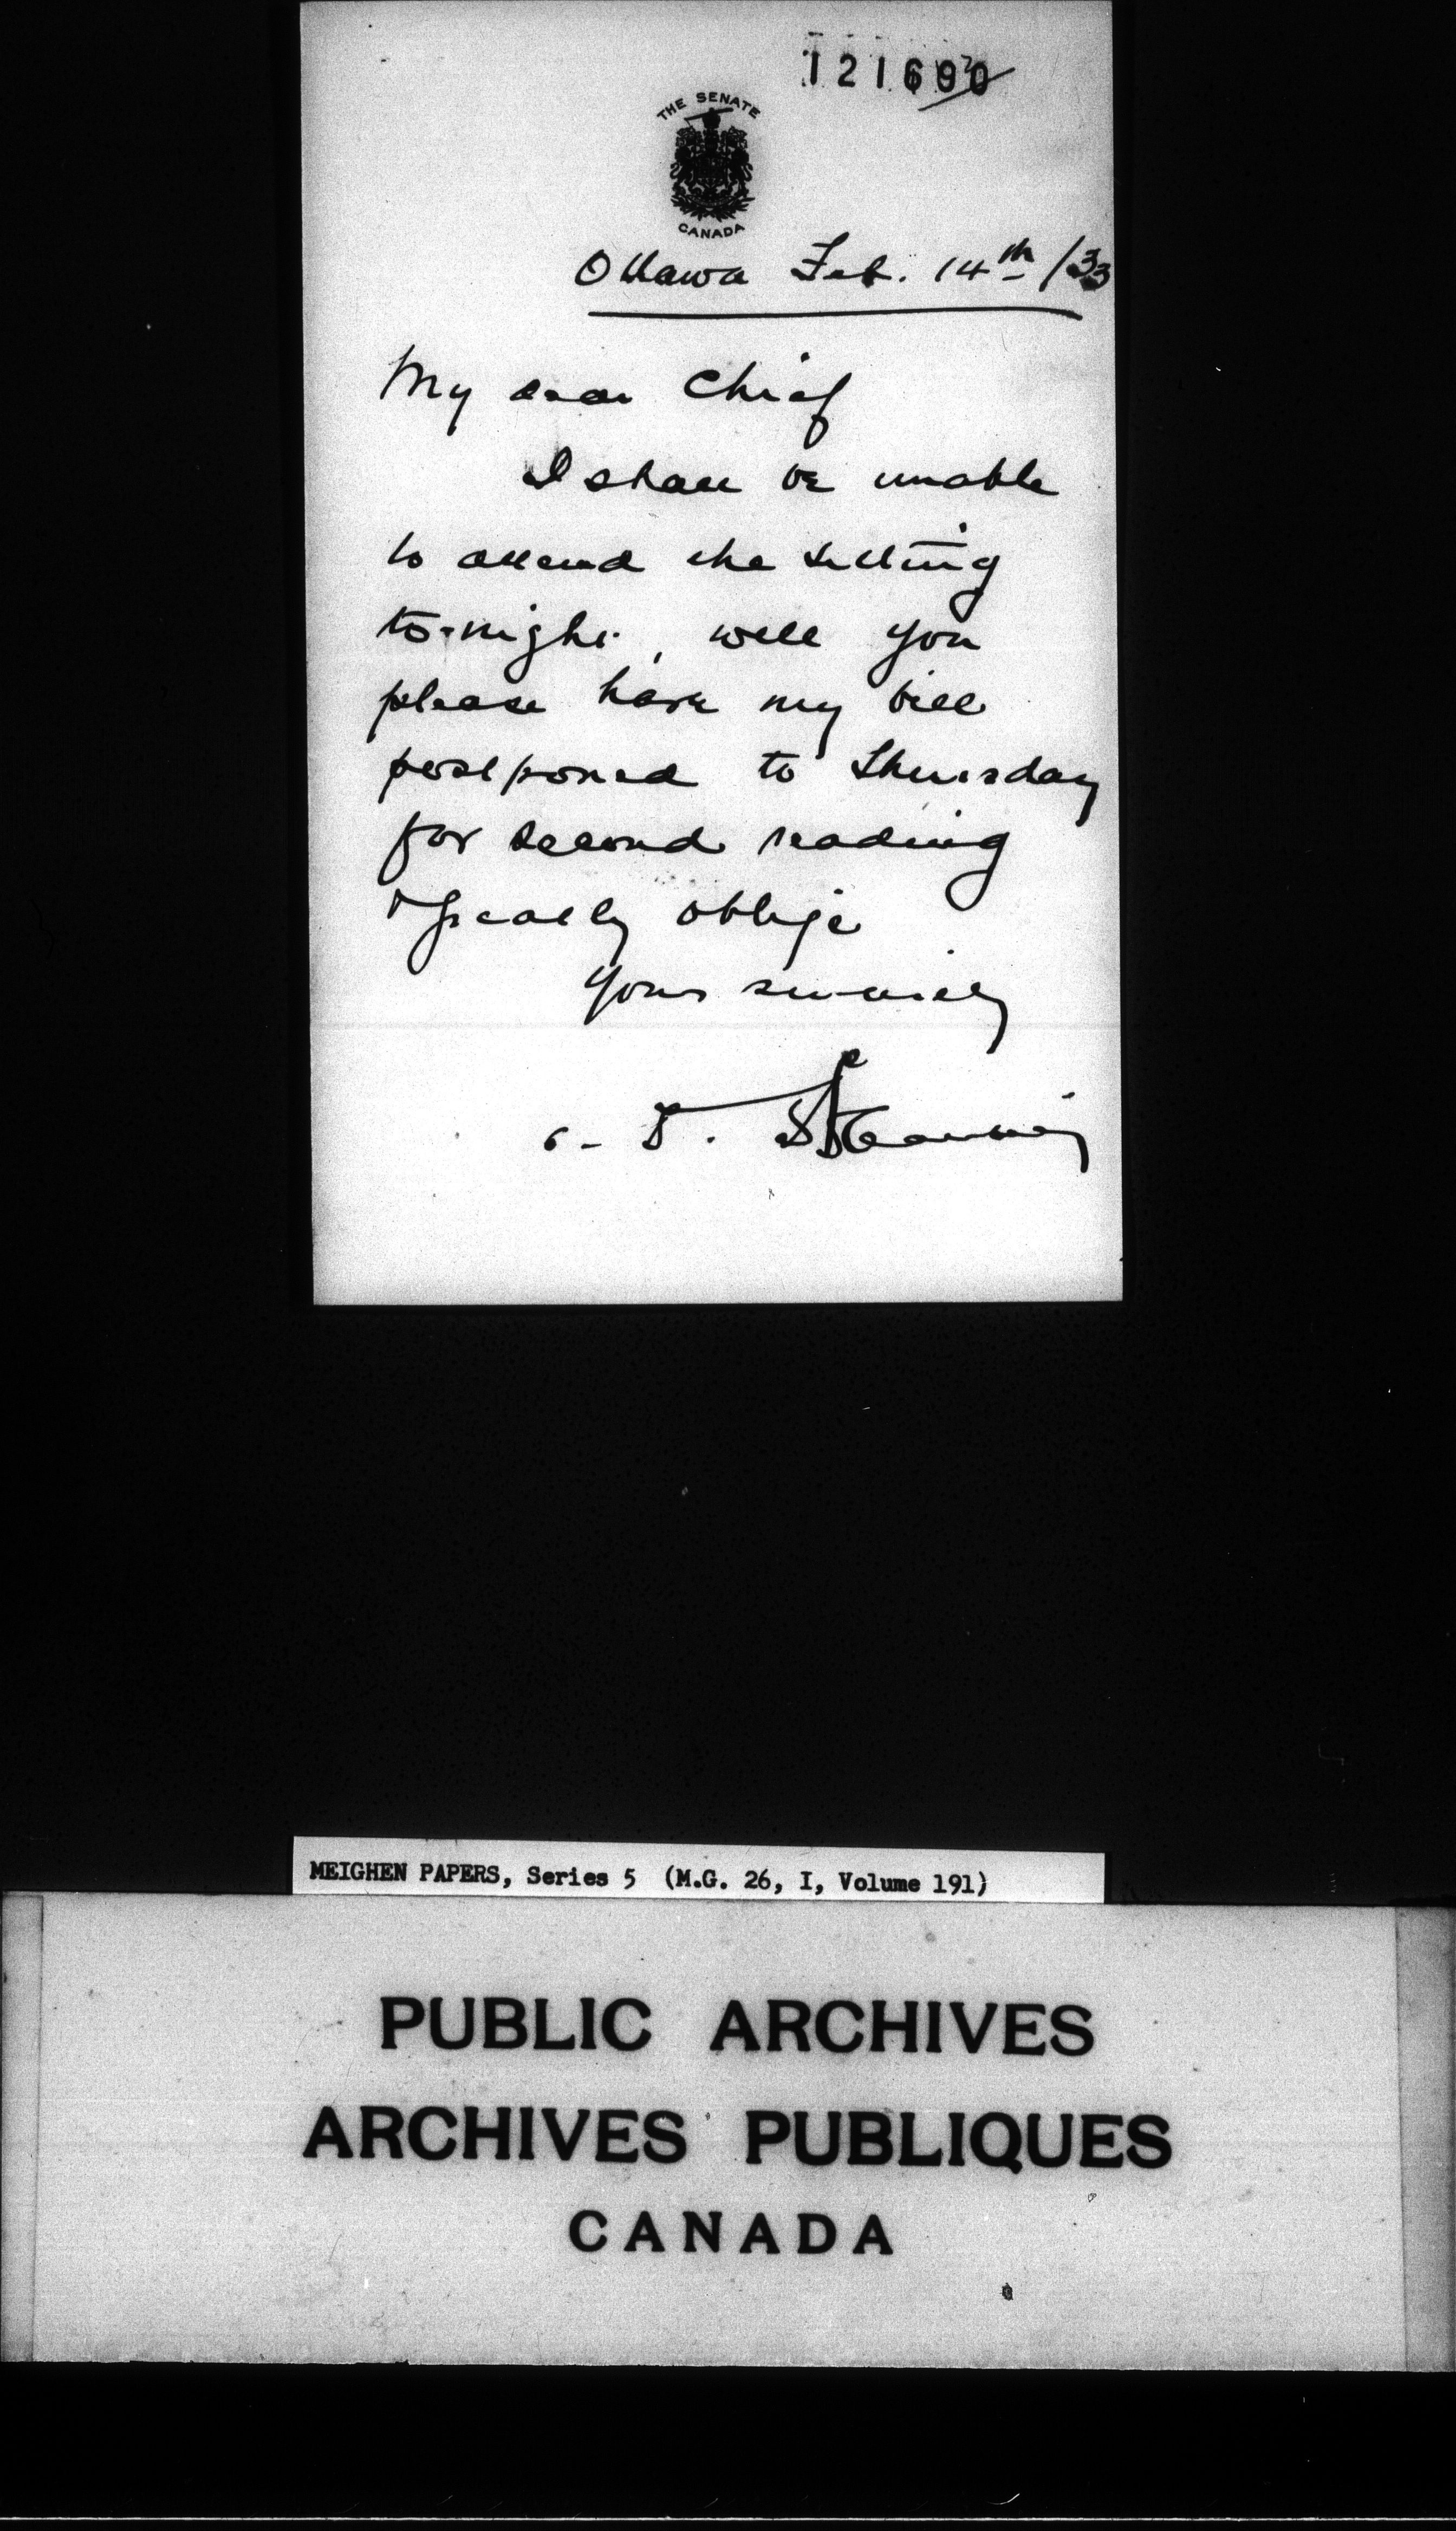 121690
THE SENATE
CANADA
Ottawa Feb. 14th /33
My dear Chief
I shall be unable
to attend the sitting
to-night, will you
please have my bill
postponed to Thursday
for second reading
& greatly oblige
Yours sincerely
MEIGHEN PAPERS, Series 5 (M.G. 26, I, Volume 191)
PUBLIC ARCHIVES
ARCHIVES PUBLIQUES
CANADA